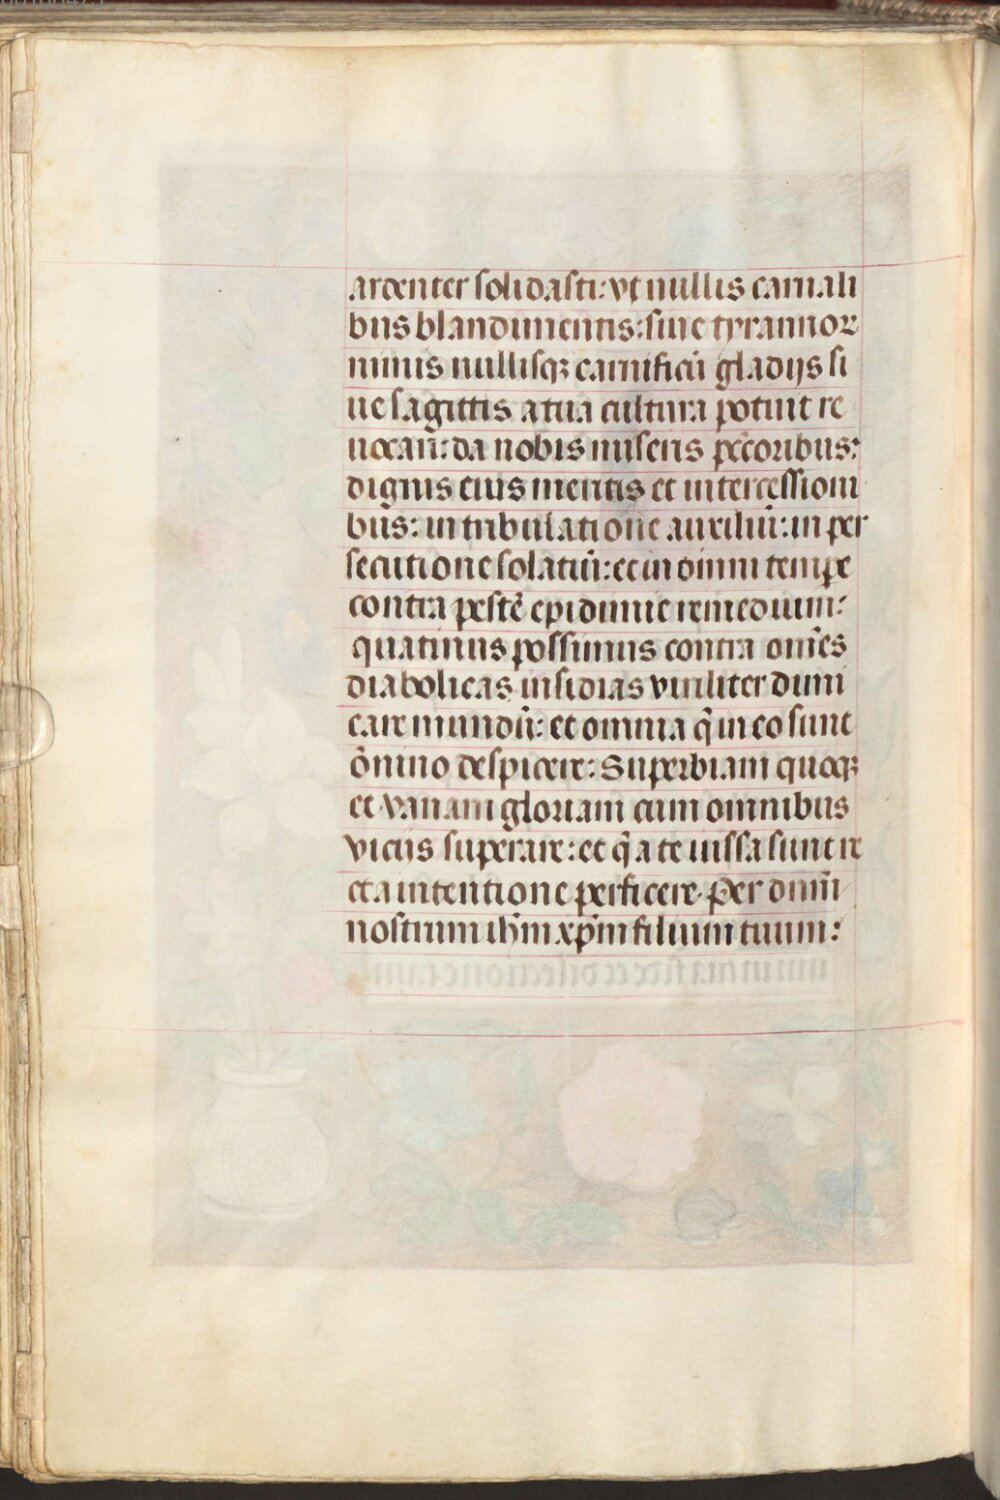 ardenter solidasti: vt nullis carnali
bus blandimentis: siue tyrannoꝝ
minis nullisqꝫ carnificū gladijs si
ue sagittis a tua cultura potuit re
uocari: da nobis miseris pctoribus:
dignis eius meritis et intercessioni
bus: in tribulatione auxiliū: in per
secutione solatiū: et in omni tempe
contra pestē epidimie remedium:
quatinus possimus contra omēs
diabolicas insidias viriliter dimi
care mundū: et omnia q̄ in eo sunt
ōnino despicere: Superbiam quoqꝫ
et vanam gloriam cum omnibus
vicijs superare: et q̄ a te iussa sunt re
cta intentione perficere. Per dnm̄
nostrum ih̄m xp̄m filium tuum: